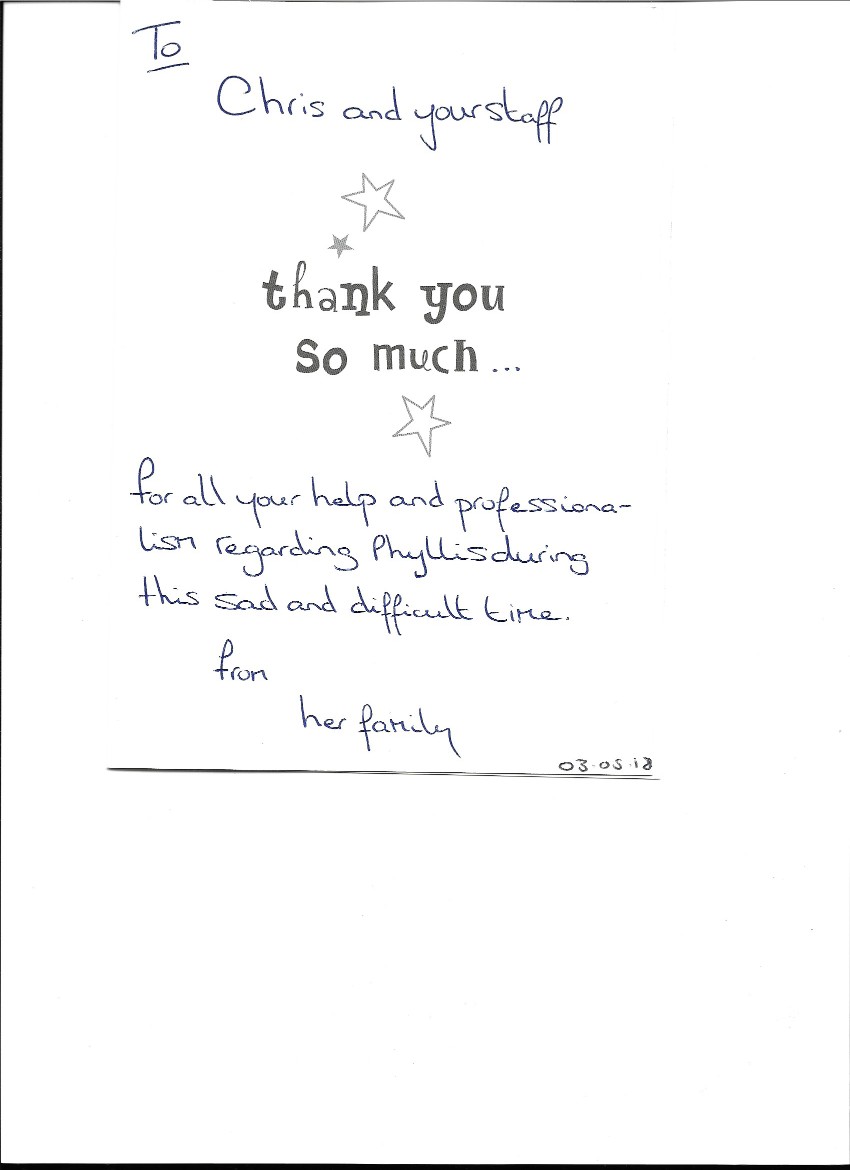 To
Chris and your staff
thank you
so much...
for all your help and professiona-
lism regarding Phyllis during
this sad and difficult time.
from
her family
03.05.18